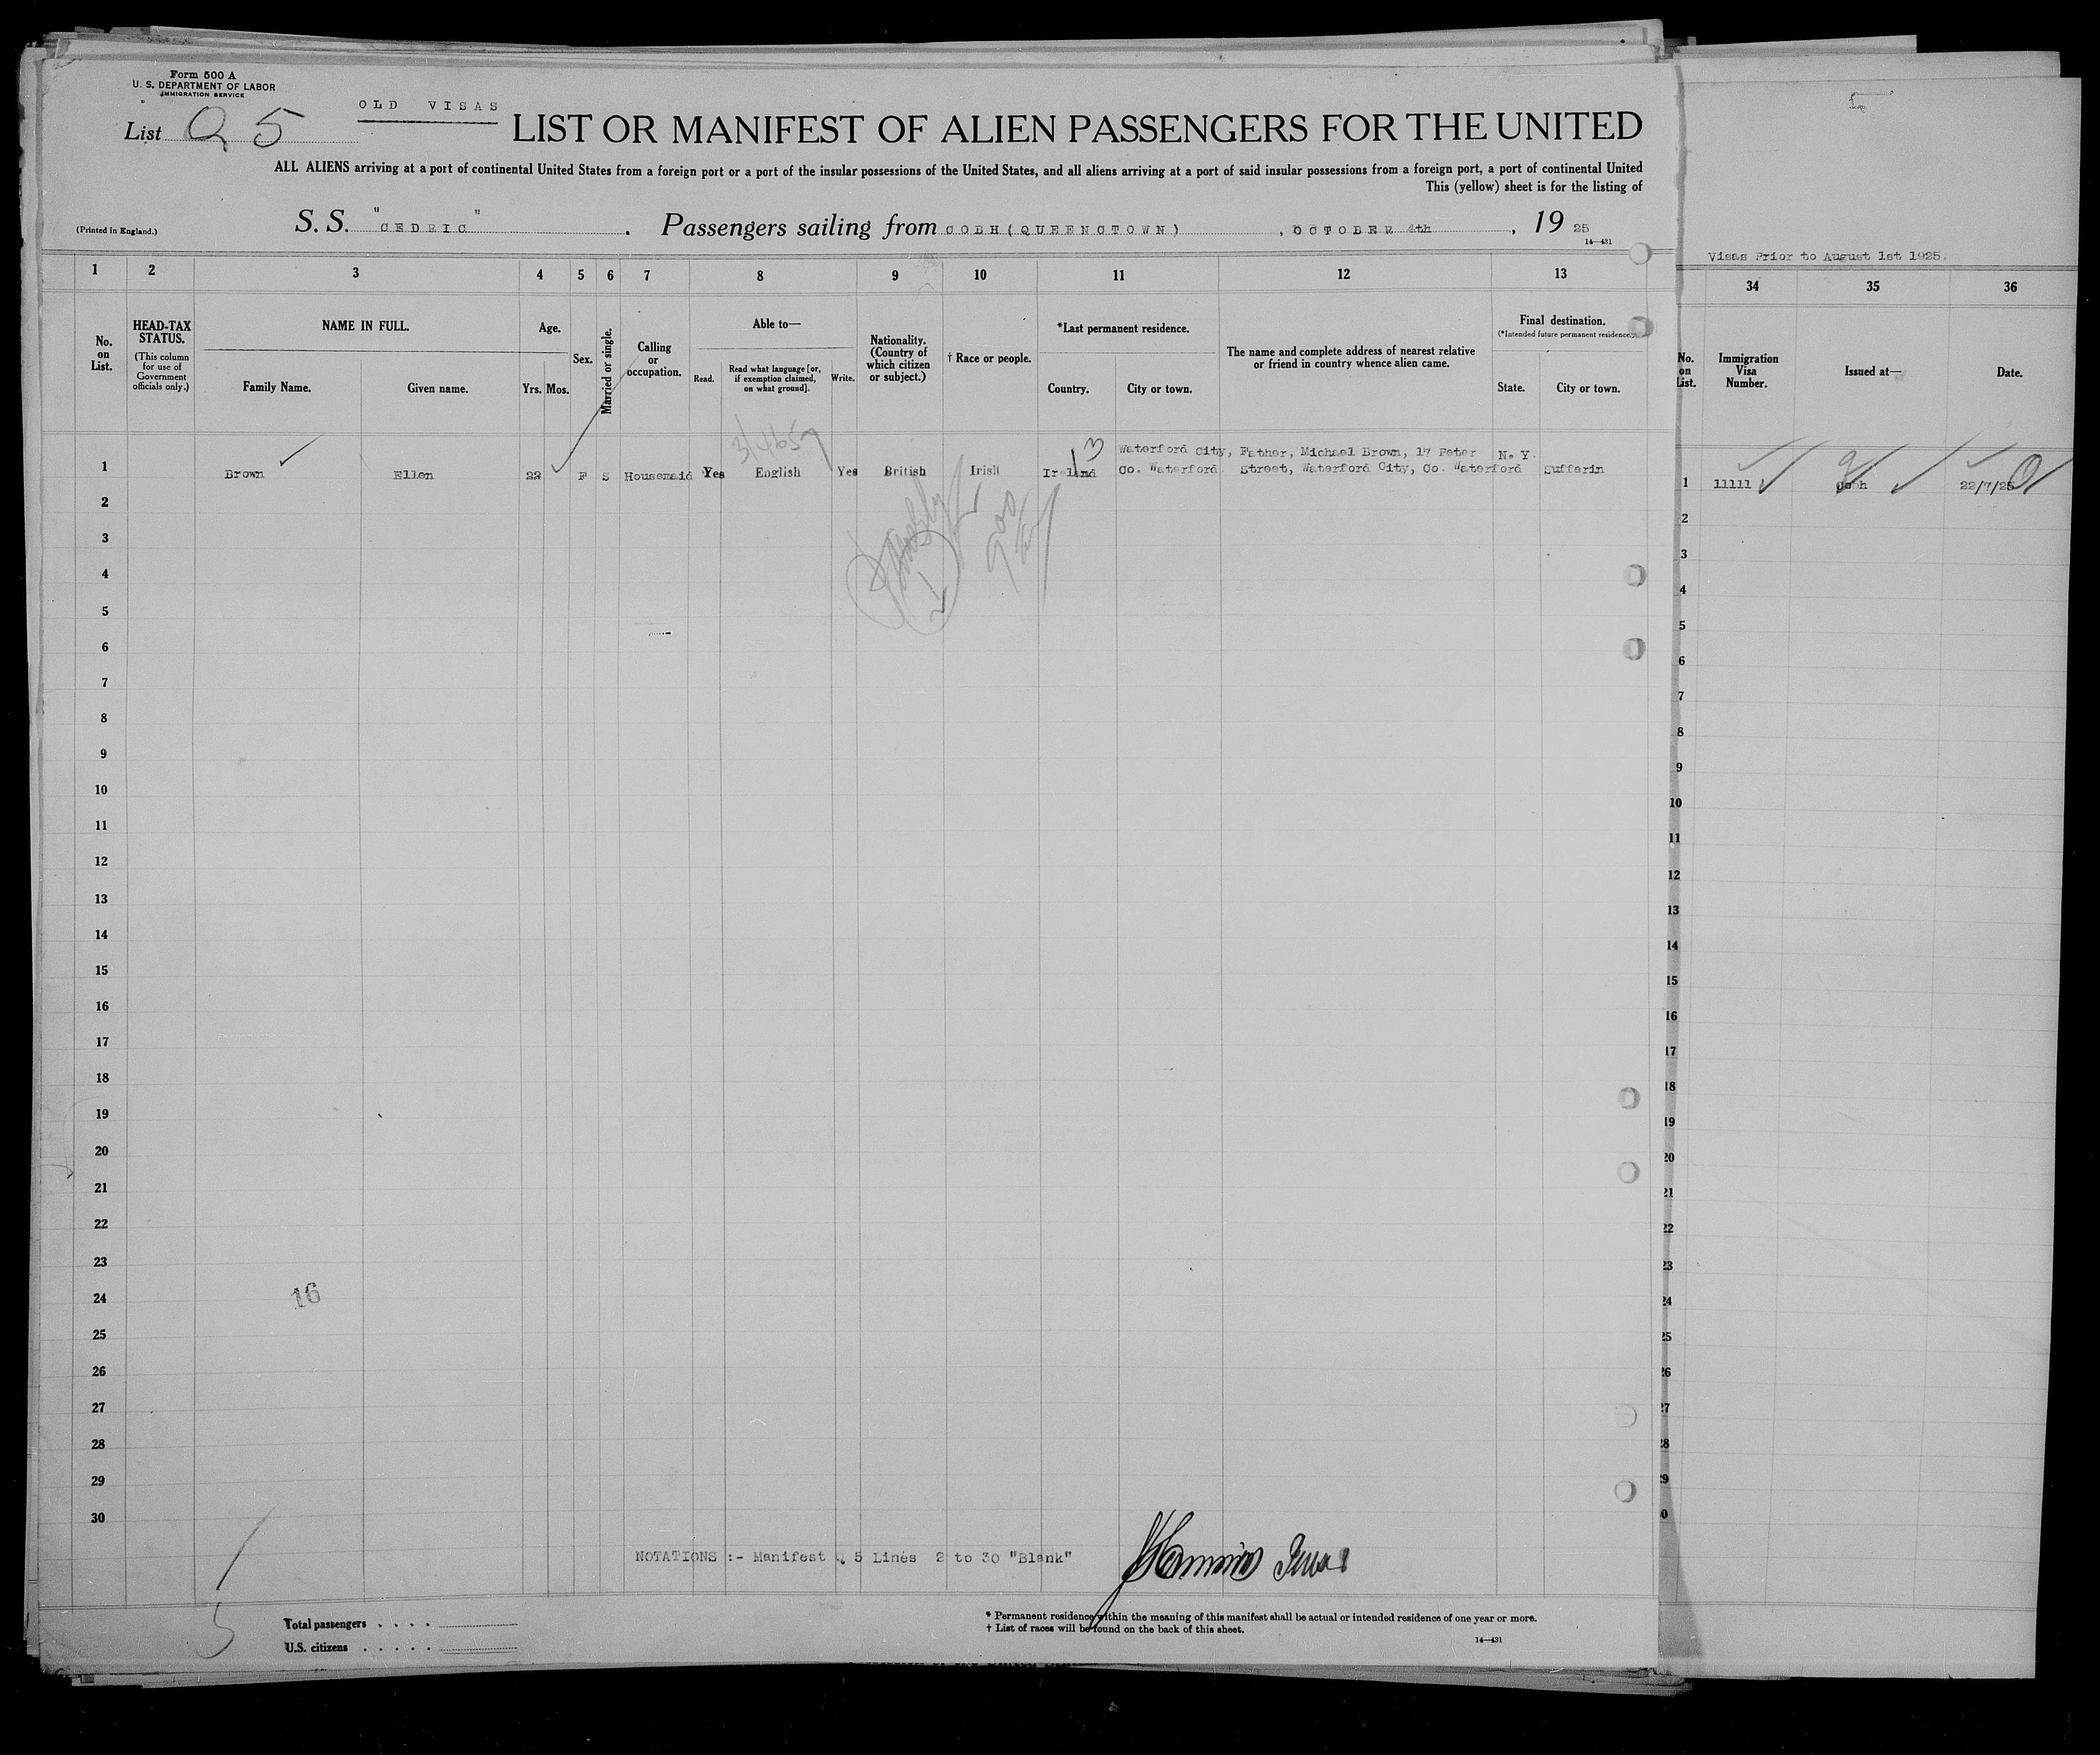 Form 500 A
U. S. DEPARTMENT OF LABOR
IMMIGRATION SERVICE
OLD VISAS
List Q 5
LIST OR MANIFEST OF ALIEN PASSENGERS FOR THE UNITED
ALL ALIENS arriving at a port of continental United States from a foreign port or a port of the insular possessions of the United States, and all aliens arriving at a port of said insular possessions from a foreign port, a port of continental United
This (yellow) sheet is for the listing of
(Printed in England.)
S. S. "CEDRIC" . Passengers sailing from COBH(QUEENSTOWN) , OCTOBER 4th , 19 25
14—431
Visas Prior to August 1st 1925.
1 2 3 4 5 6 7 8 9 10 11 12 13
34 35 36
No. on List.
HEAD-TAX STATUS.
(This column for use of Government officials only.)
NAME IN FULL.
Family Name.
Given name.
Age.
Yrs. Mos.
Sex.
Married or single.
Calling or occupation.
Able to—
Read.
Read what language [or, if exemption claimed, on what ground].
Write.
Nationality. (Country of which citizen or subject.)
† Race or people.
*Last permanent residence.
Country.
City or town.
The name and complete address of nearest relative or friend in country whence alien came.
Final destination.
(*Intended future permanent residence.)
State.
City or town.
No. on List.
Immigration Visa Number.
Issued at—
Date.
3
Waterford City, Father, Michael Brown, 17 Peter N. Y.
1 Brown Ellen 22 F S Housemaid Yes English Yes British Irish Ireland Co. Waterford Street, Waterford City, Co. Waterford Sufferin
1 11111 Cobh 22/7/25
2 2
3 3
4 4
5 5
6 6
7 7
8 8
9 9
10 10
11 11
12 12
13 13
14 14
15 15
16 16
17 17
18 18
19 19
20 20
21 21
22 22
23 23
16
24 24
25 25
26 26
27 27
28 28
29 29
30 30
NOTATIONS :- Manifest Q 5 Lines 2 to 30 "Blank"
Total passengers . . . .
U.S. citizens . . . . .
* Permanent residence within the meaning of this manifest shall be actual or intended residence of one year or more.
† List of races will be found on the back of this sheet.
14—431